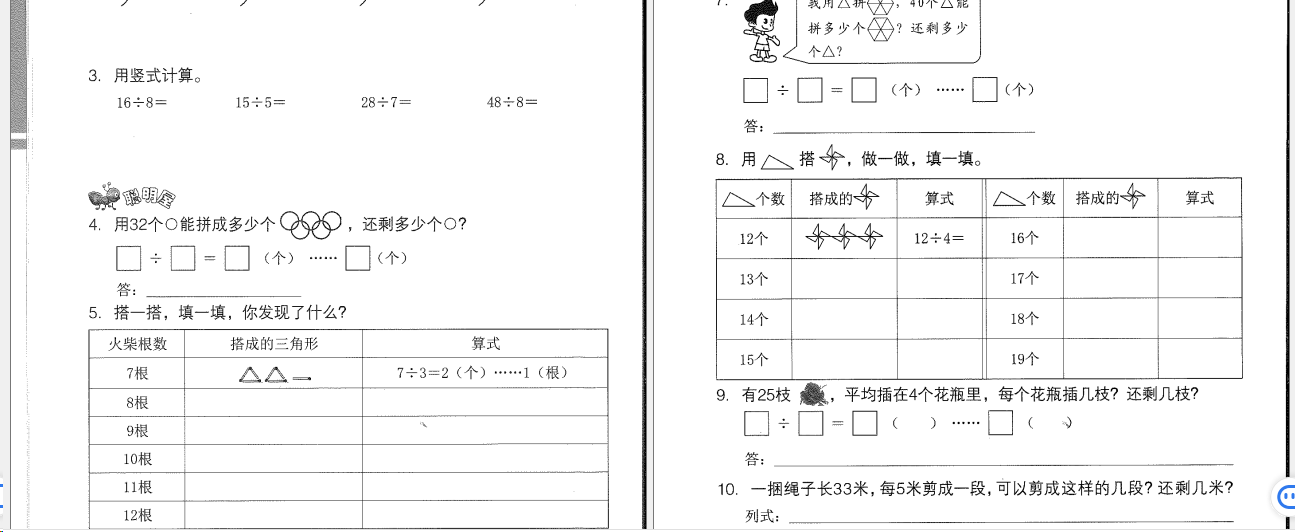 3. 用竖式计算。
16÷8= 15÷5= 28÷7= 48÷8=
聪明屋
4. 用32个○能拼成多少个，还剩多少个○?
□ ÷ □ = □（个）……□（个）
答：
5. 搭一搭，填一填，你发现了什么?
火柴根数 搭成的三角形 算式
7根 7÷3=2（个）……1（根）
8根
9根
10根
11根
12根
7. 我用△拼，40个△能
拼多少个？还剩多少
个△?
□ ÷ □ = □（个）……□（个）
答：
8. 用搭，做一做，填一填。
个数 搭成的 算式 个数 搭成的 算式
12个 12÷4= 16个
13个 17个
14个 18个
15个 19个
9. 有25枝，平均插在4个花瓶里，每个花瓶插几枝？还剩几枝?
□ ÷ □ = □（ ）……□（ ）
答：
10. 一捆绳子长33米，每5米剪成一段，可以剪成这样的几段？还剩几米?
列式：